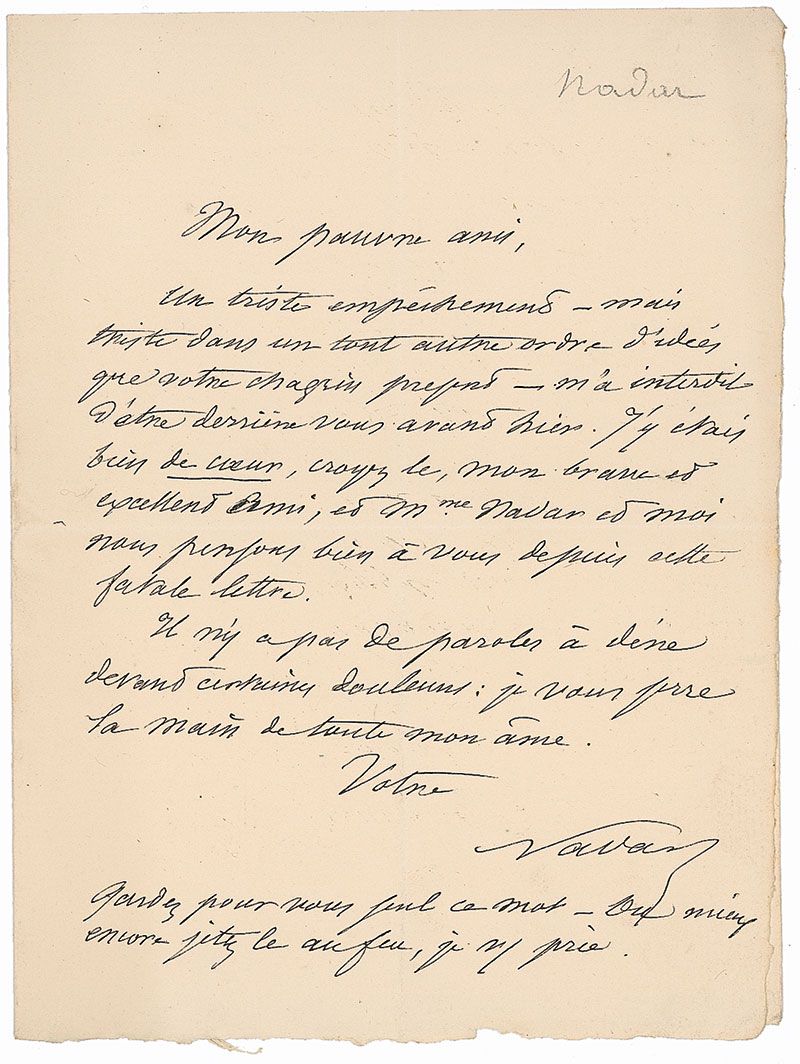 Nadar
Mon pauvre ami,
Un triste empêchement – mais
triste dans un tout autre ordre d'idées
que votre chagrin profond – m'a interdit
d'être derrière vous avant hier. J'y étais
bien de cœur, croyez le, mon brave et
excellent Ami, et Mme Nadar et moi
nous pensons bien à vous depuis cette
fatale lettre.
Il n'y a pas de paroles à dire
devant certaines douleurs : je vous serre
la main de toute mon âme.
Votre
Nadar
Gardez pour vous seul ce mot – Ou mieux
encore jetez le au feu, je vous prie.